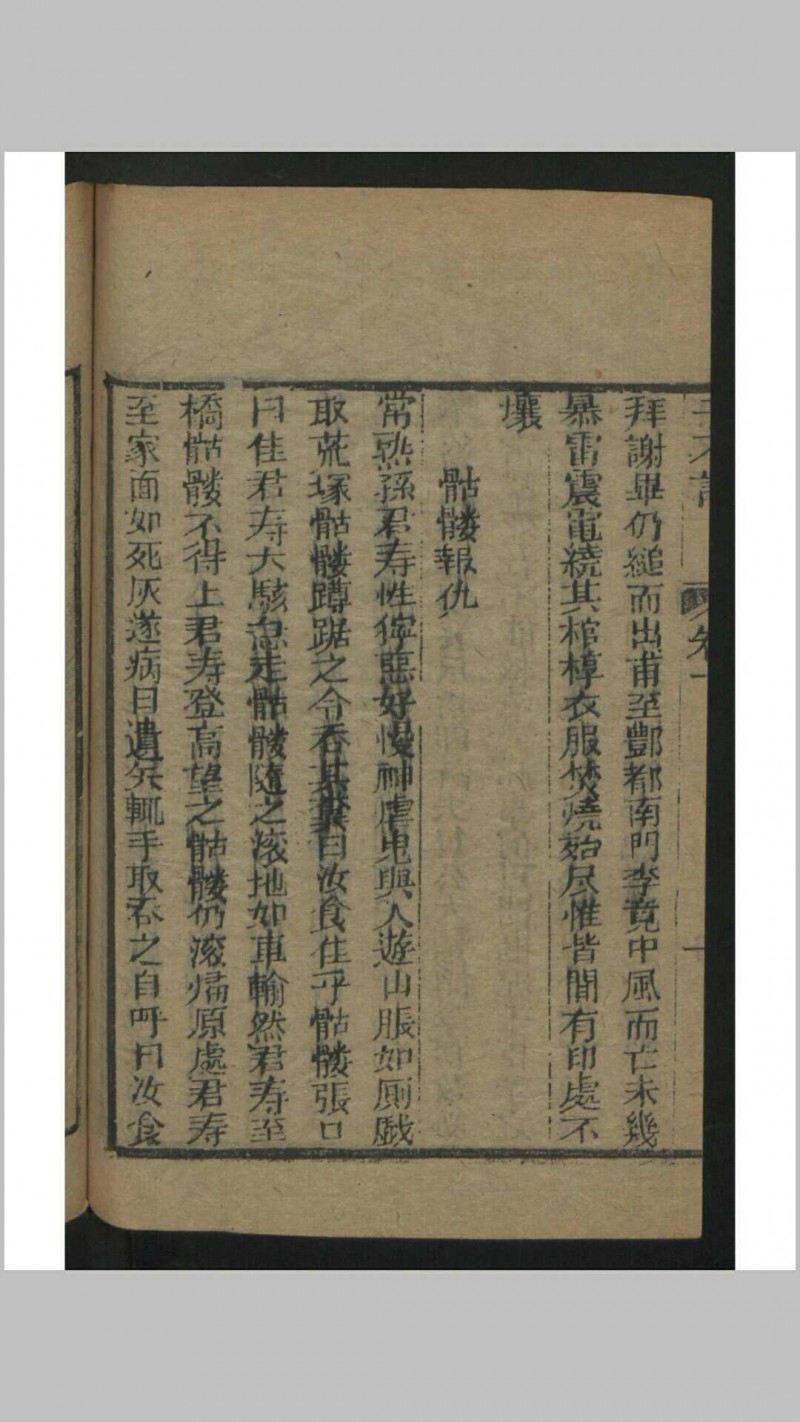 子不語 卷一 一
拜謝畢仍縋而出甫至酆都南門李竟中風而亡未幾
暴雷震電繞其棺椁衣服焚燒殆尽惟皆間有印處不
壞
骷髏報仇
常熟孫君寿性獰惡好慢神虐鬼與人遊山脹如厠戯
取荒塚骷髏蹲踞之令吞其糞曰汝食佳乎骷髏張口
曰佳君寿大駭急走骷髏隨之滚地如車輪然君寿至
橋骷髏不得上君寿登高望之骷髏仍滚歸原處君寿
至家面如死灰遂病日遺矢輒手取吞之自呼曰汝食